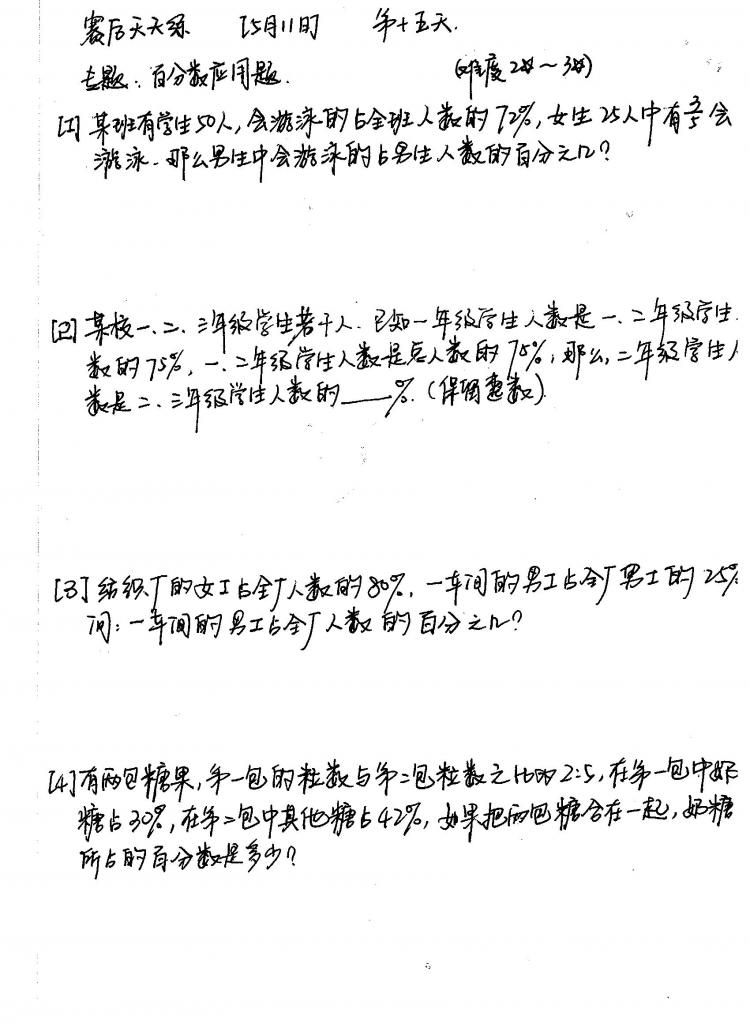 赛后天天练 [5月11日] 第十五天.
专题: 百分数应用题. (难度2#~3#)
[1] 某班有学生50人, 会游泳的占全班人数的72%, 女生25人中有3/5会
游泳. 那么男生中会游泳的占男生人数的百分之几?
[2] 某校一、二、三年级学生若干人. 已知一年级学生人数是一、二年级学生
数的75%, 一、二年级学生人数是总人数的75%, 那么, 二年级学生人
数是二、三年级学生人数的___%. (保留整数)
[3] 纺织厂的女工占全厂人数的80%, 一车间的男工占全厂男工的25%
问: 一车间的男工占全厂人数的百分之几?
[4] 有两包糖果, 第一包的粒数与第二包粒数之比为2:5, 在第一包中奶
糖占30%, 在第二包中其他糖占42%, 如果把两包糖合在一起, 奶糖
所占的百分数是多少?